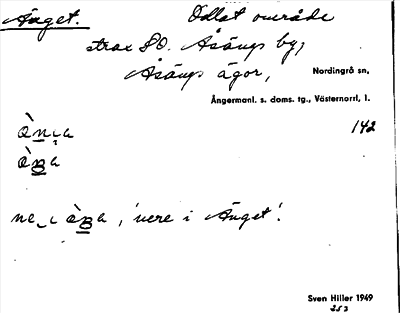 Änget. Odlat område
strax SO. Åsängs by,
Åsängs ägor, Nordingrå sn,
Ångermanl. s. doms. tg., Västernorrl. l.
142
'nere i Änget'.
Sven Hiller 1949